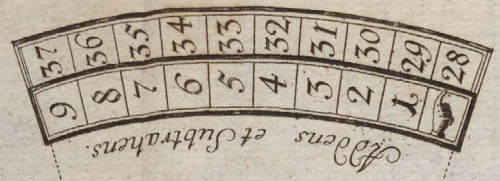 37 36 35 34 33 32 31 30 29 28
9 8 7 6 5 4 3 2 1
Addens et Subtrahens